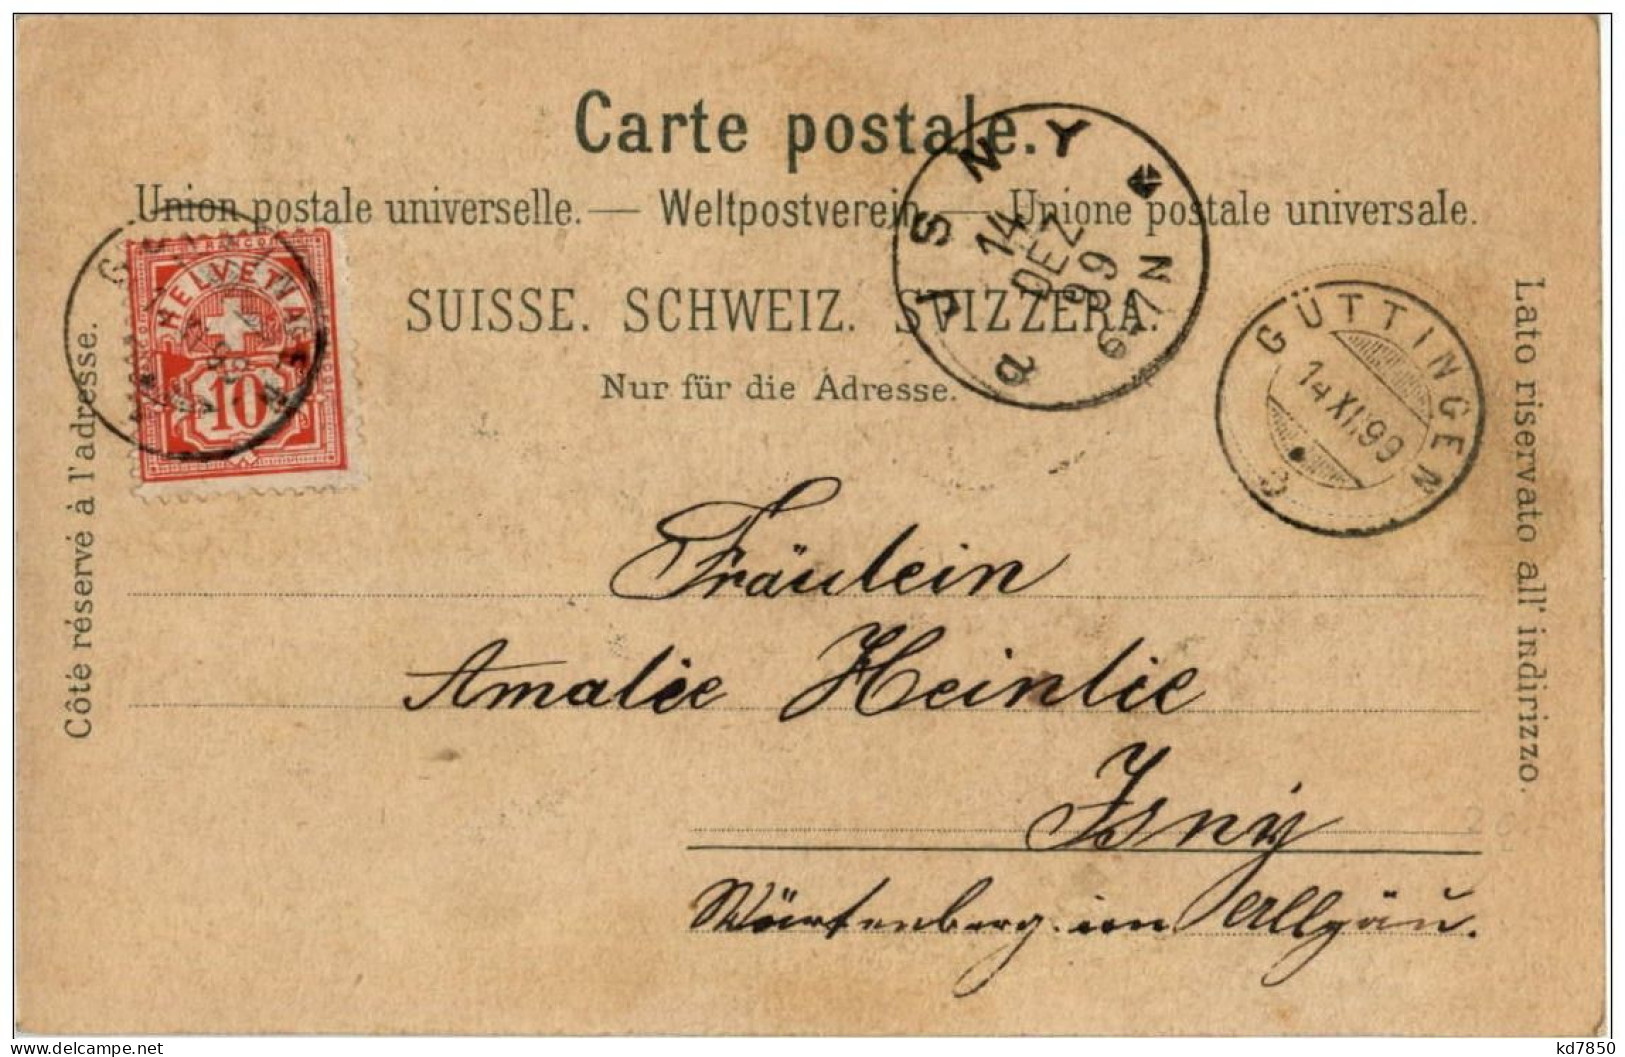 Carte postale.
Union postale universelle. — Weltpostverein — Unione postale universale.
SUISSE. SCHWEIZ. SVIZZERA.
Nur für die Adresse.
Côté réservé à l'adresse.
Lato riservato all' indirizzo.
FRANCO
HELVETIA
10
JSNY
14
DEZ
99
6-7N
a
GÜTTINGEN
14 XI.99
Fräulein
Amalie Heinlie
Isny
Würtenberg. im Allgäu.
Delcampe.net
kd7850